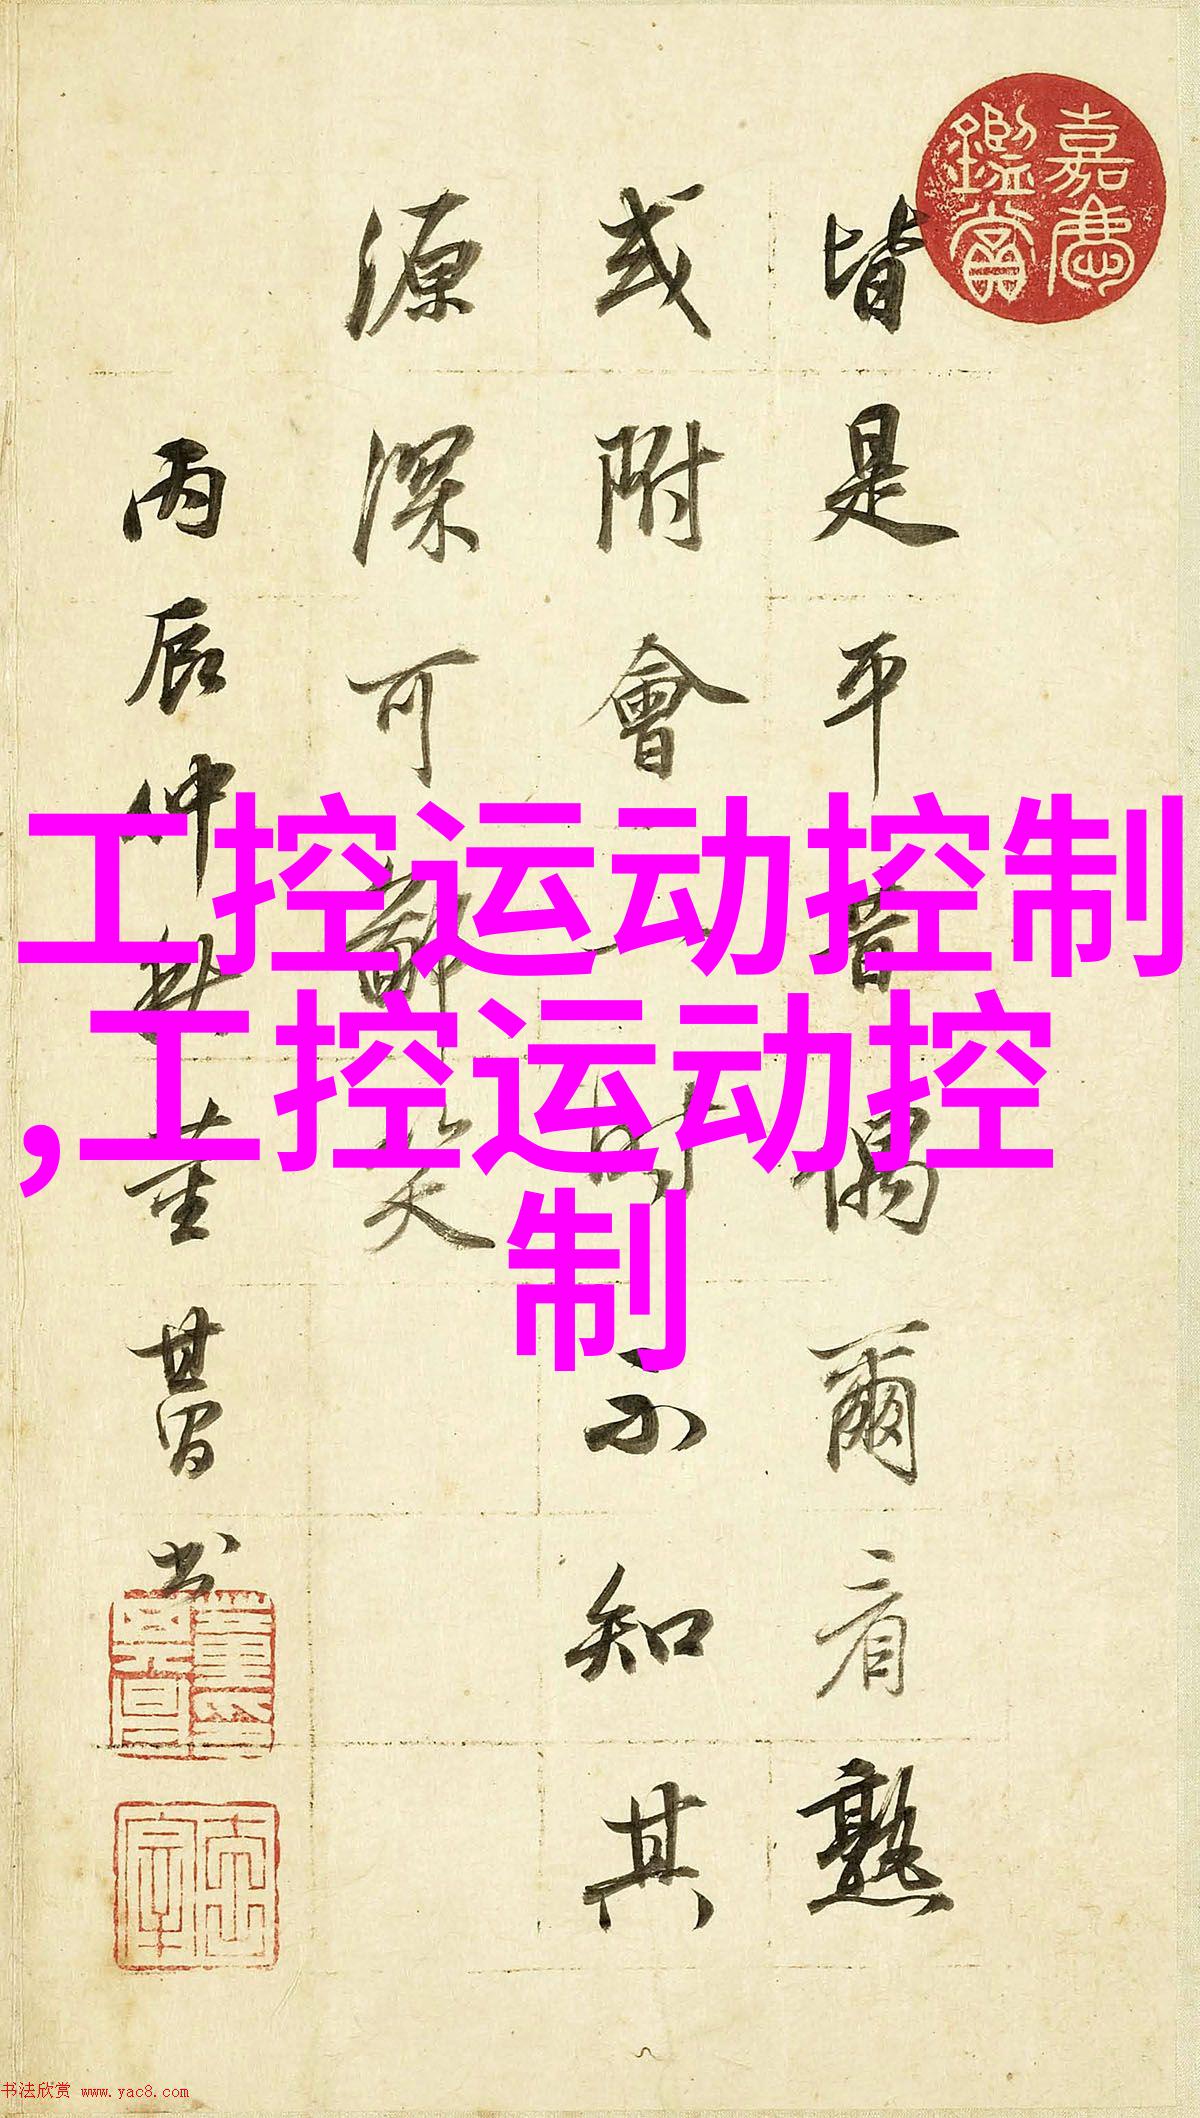 嘉慶
鑑賞
皆是平昔偶爾看熟
或附會一時不知其
源深可鄙笑
丙辰仲秋董其昌书
工控运动控制
,工控运动控
制
书法欣赏 www.yac8.com